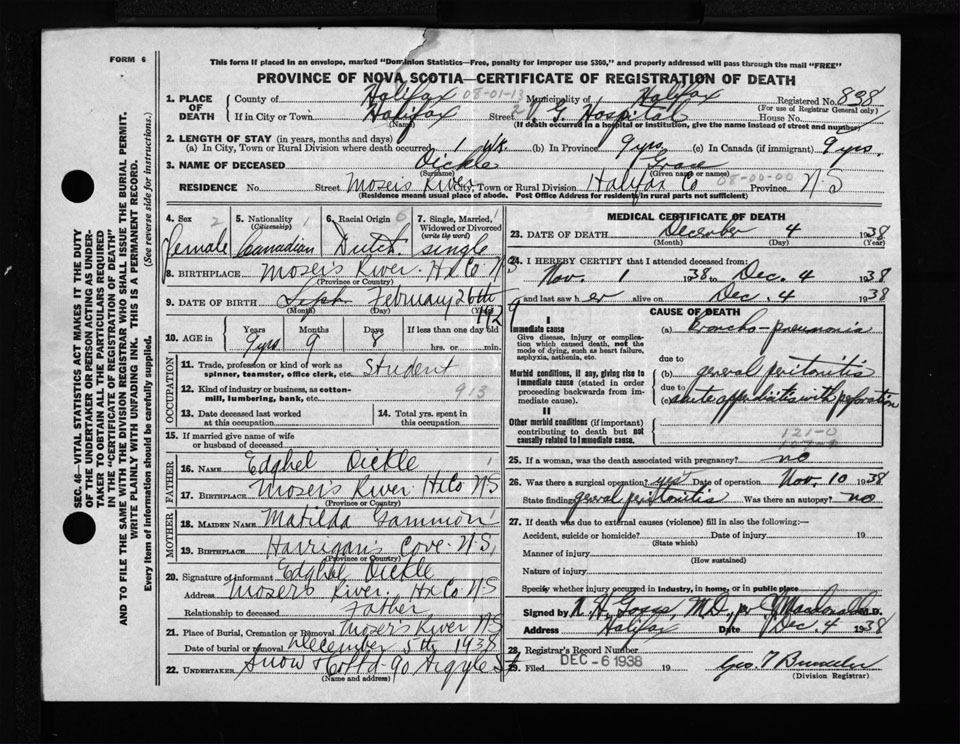 FORM 6
This form if placed in an envelope, marked "Dominion Statistics—Free, penalty for improper use $300," and properly addressed will pass through the mail "FREE"
PROVINCE OF NOVA SCOTIA—CERTIFICATE OF REGISTRATION OF DEATH
1. PLACE OF DEATH
County of Halifax 08-01-13 Municipality of Halifax Registered No. 898
(For use of Registrar General only)
If in City or Town Halifax Street V. G. Hospital House No.
(Name) (If death occurred in a hospital or institution, give the name instead of street and number)
2. LENGTH OF STAY (in years, months and days)
(a) In City, Town or Rural Division where death occurred 1 wk. (b) In Province 9 yrs. (c) In Canada (if immigrant) 9 yrs.
3. NAME OF DECEASED Dickle Grace
(Surname) (Given name or names)
RESIDENCE No. Street Moser's River City, Town or Rural Division Halifax Co 08-00-00 Province N S
(Residence means usual place of abode. Post Office Address for residents in rural parts not sufficient)
4. Sex 2 female
5. Nationality (Citizenship) 1 Canadian
6. Racial Origin Dutch
7. Single, Married, Widowed or Divorced (write the word) 1 single
8. BIRTHPLACE Moser's River. Hx Co. N S
(Province or Country)
9. DATE OF BIRTH Sept February 26th 1929
(Month) (Day)
10. AGE in Years Months Days If less than one day old
9 yrs 9 8 hrs. or min.
OCCUPATION
11. Trade, profession or kind of work as spinner, teamster, office clerk, etc. Student
12. Kind of industry or business, as cotton-mill, lumbering, bank, etc. 913
13. Date deceased last worked at this occupation
14. Total yrs. spent in this occupation
15. If married give name of wife or husband of deceased
FATHER
16. NAME Edghel Dickle 1
17. BIRTHPLACE Moser's River Hx Co N S
(Province or Country)
MOTHER
18. MAIDEN NAME Matilda Gammon 1
19. BIRTHPLACE Harrigan's Cove. N.S.
(Province or Country)
20. Signature of informant Edghel Dickle
Address Moser's River. Hx Co N S
Relationship to deceased Father
21. Place of Burial, Cremation or Removal Moser's River N S
Date of burial or removal December 5th 1938
22. UNDERTAKER Snow & Co Ltd 90 Argyle St
(Name and address)
MEDICAL CERTIFICATE OF DEATH
23. DATE OF DEATH December 4 1938
(Month) (Day) (Year)
24. I HEREBY CERTIFY that I attended deceased from:
Nov. 1 1938 to Dec. 4 1938
and last saw her alive on Dec. 4 1938
CAUSE OF DEATH
I
Immediate cause
Give disease, injury or complication which caused death, not the mode of dying, such as heart failure, asphyxia, asthenia, etc.
(a) Broncho-pneumonia
due to
Morbid conditions, if any, giving rise to immediate cause (stated in order proceeding backwards from immediate cause).
(b) general peritonitis
due to
(c) acute appendicitis with perforation
II
Other morbid conditions (if important) contributing to death but not causally related to immediate cause.
121-0
25. If a woman, was the death associated with pregnancy? no
26. Was there a surgical operation? yes Date of operation Nov. 10 1938
State findings general peritonitis Was there an autopsy? no
27. If death was due to external causes (violence) fill in also the following:—
Accident, suicide or homicide? Date of injury 19
(State which)
Manner of injury
(How sustained)
Nature of injury
Specify whether injury occurred in industry, in home, or in public place
Signed by N. H. Gosse, M.D., per J Macdonald M.D.
Address Halifax Date Dec 4 1938
28. Registrar's Record Number
29. Filed DEC - 6 1938 19
(Division Registrar)
SEC. 46—VITAL STATISTICS ACT MAKES IT THE DUTY
OF THE UNDERTAKER OR PERSON ACTING AS UNDER-
TAKER TO OBTAIN ALL THE PARTICULARS REQUIRED
IN THE "CERTIFICATE OF REGISTRATION OF DEATH"
AND TO FILE THE SAME WITH THE DIVISION REGISTRAR WHO SHALL ISSUE THE BURIAL PERMIT.
WRITE PLAINLY WITH UNFADING INK. THIS IS A PERMANENT RECORD.
Every item of Information should be carefully supplied. (See reverse side for instructions.)